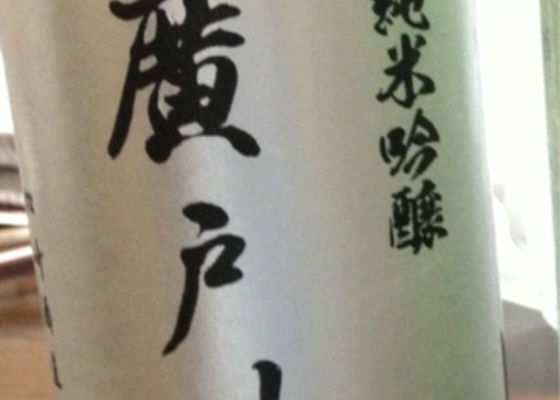 純米吟醸
廣戸